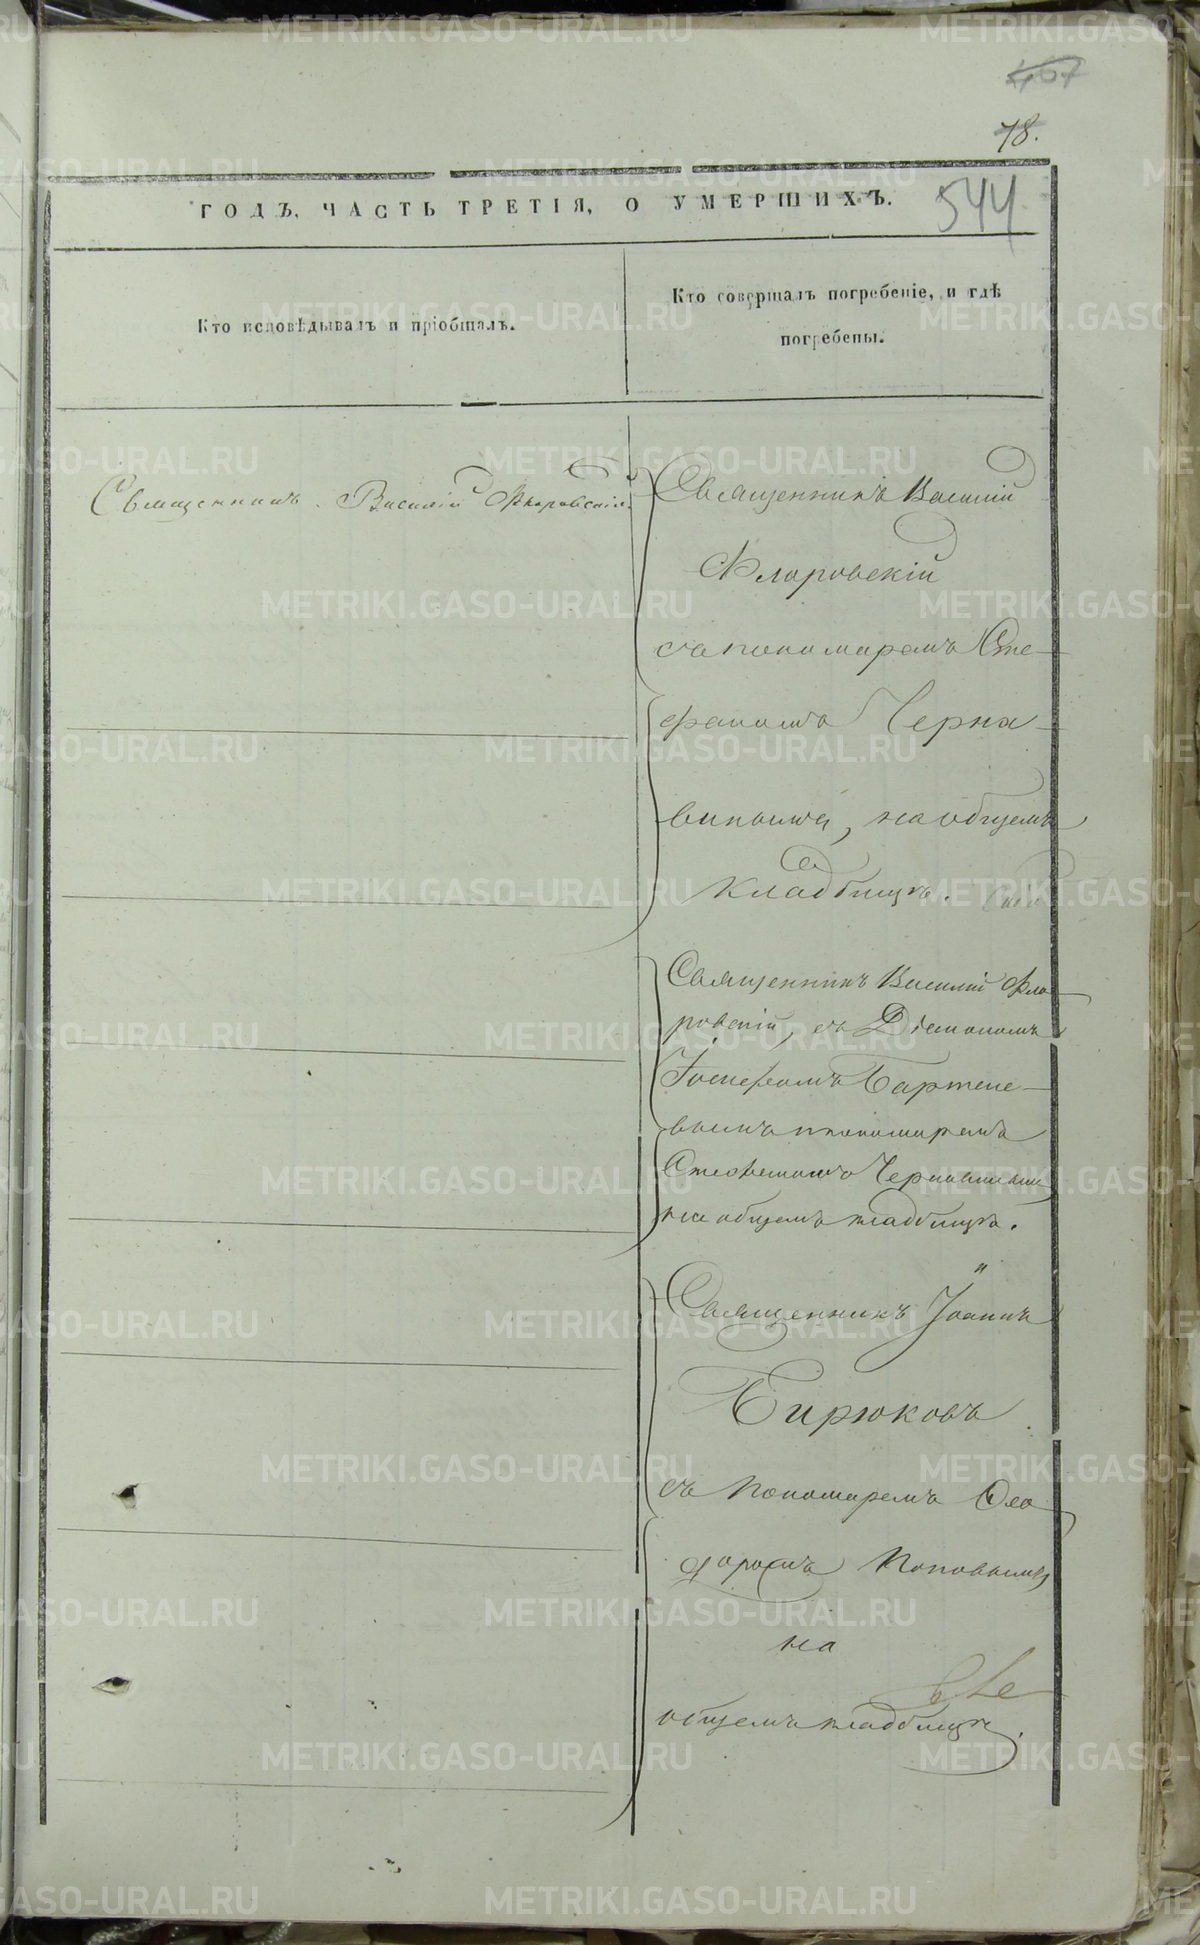 467
78.
ГОДЪ, ЧАСТЬ ТРЕТІЯ, О УМЕРШИХЪ.
544
Кто исповѣдывалъ и пріобщалъ.
Кто совершалъ погребеніе, и гдѣ
погребены.
Священникъ Василій Флоровскій.
Священникъ Василій
Флоровскій
съ пономаремъ Сте-
фаномъ Черна-
виномъ, на общемъ
кладбищѣ.
Священникъ Василій Фло-
ровскій, съ Діакономъ
Іосифомъ Бартене-
вымъ и пономаремъ
Стефаномъ Чернавинымъ
на общемъ кладбищѣ.
Священникъ Іоаннъ
Бирюковъ
съ пономаремъ Ѳео-
доромъ Поповымъ
на
общемъ кладбищѣ.
METRIKI.GASO-URAL.RU